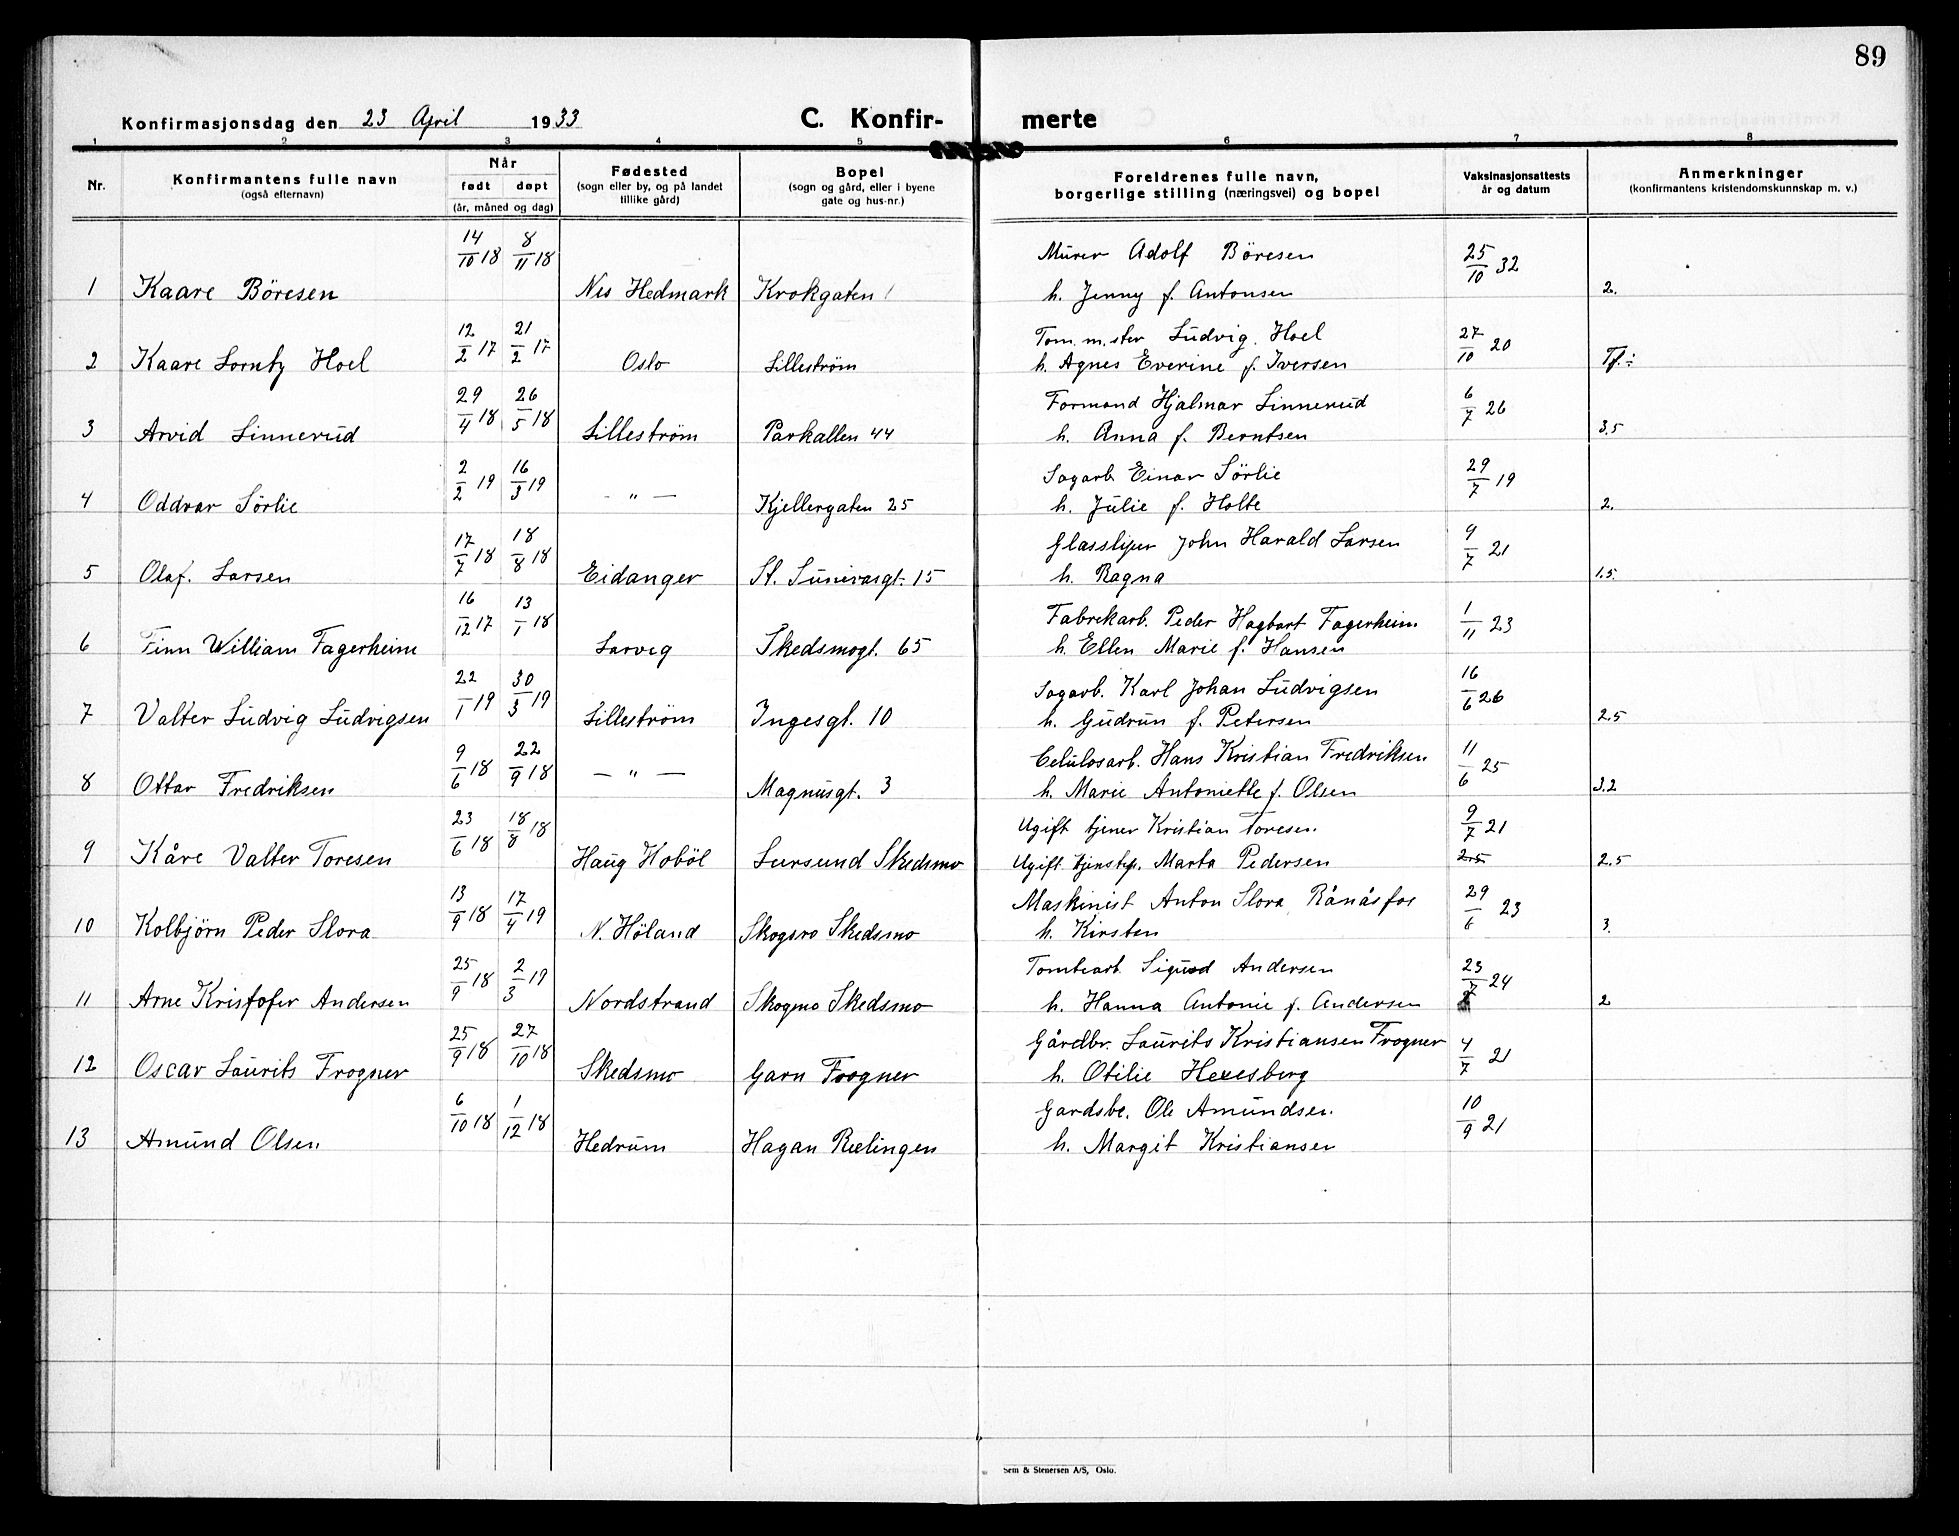 89
Konfirmasjonsdag den 23 April 1933
C. Konfirmerte
1 2 3 4 5 6 7 8
Nr.
Konfirmantens fulle navn
(også efternavn)
Når
født døpt
(år, måned og dag)
Fødested
(sogn eller by, og på landet
tillike gård)
Bopel
(sogn og gård, eller i byene
gate og hus-nr.)
Foreldrenes fulle navn,
borgerlige stilling (næringsvei) og bopel
Vaksinasjonsattests
år og datum
Anmerkninger
(konfirmantens kristendomskunnskap m. v.)
14/10 18 8/11 18 Murer Adolf Böresen 25/10 32
1 Kaare Böresen Nes Hedmark Krokgaten 1 h. Jenny f. Antonsen 2.
12/2 17 21/2 17 Tom.m.ster Ludvig. Hoel 27/10 20
2 Kaare Hoel Oslo Lilleström h. Agnes Everine f. Iversen Tf.:
29/4 18 26/5 18 Formand Hjalmar Linnerud 6/7 26
3 Arvid Linnerud Lilleström Parkallen 44 h. Anna f. Berntsen 3.5
2/2 19 16/3 19 Sagarb. Einar Sörlie 29/7 19
4 Oddvar Sörlie — " — Kjellergaten 25 h. Julie f. Holte 2.
17/7 18 18/8 18 Glassliper John Harald Larsen 9/7 21
5 Olaf. Larsen Eidanger St. Sunivasgt. 15 h. Ragna 1.5.
16/12 17 13/1 18 Fabrekarb. Peder Hagbart Fagerheim 1/11 23
6 Finn William Fagerheim Larvig Skedsmogt. 65 h. Ellen Marie f. Hansen
22/1 19 30/3 19 Sagarb. Karl Johan Ludvigsen 16/6 26
7 Valter Ludvig Ludvigsen Lilleström Ingesgt. 10 h. Gudrun f. Petersen 2.5
9/6 18 22/9 18 Celulosarb. Hans Kristian Fredriksen 11/6 25
8 Ottar Fredriksen — " — Magnusgt. 3 h. Marie Antoniette f. Olsen 3.2
23/6 18 18/8 18 Ugift tjener Kristian Toresen 9/7 21
9 Kåre Valter Toresen Haug Hoböl Lursund Skedsmo Ugift tjenstep. Marta Pedersen 2.5 2.5
13/9 18 17/4 19 Maskinist Anton Slora Rånåsfos 29/6 23
10 Kolbjörn Peder Slora N. Höland Skogsro Skedsmo h. Kirsten 3.
25/9 18 2/3 19 Tomtearb. Sigurd Andersen 23/7 24
11 Arne Kristofer Andersen Nordstrand Skogmo Skedsmo h. Hanna Antonie f. Andersen 2
25/9 18 27/10 18 Gårdbr. Laurits Kristiansen Frogner 4/7 21
12 Oscar Laurits Frogner Skedsmo Garn Frogner h. Otilie Hexesberg
6/10 18 1/12 18 Gardsbe. Ole Amundsen 10/9 21
13 Amund Olsen Hedrum Hagan Rælingen h. Margit Kristiansen
Sem & Stenersen A/S, Oslo.